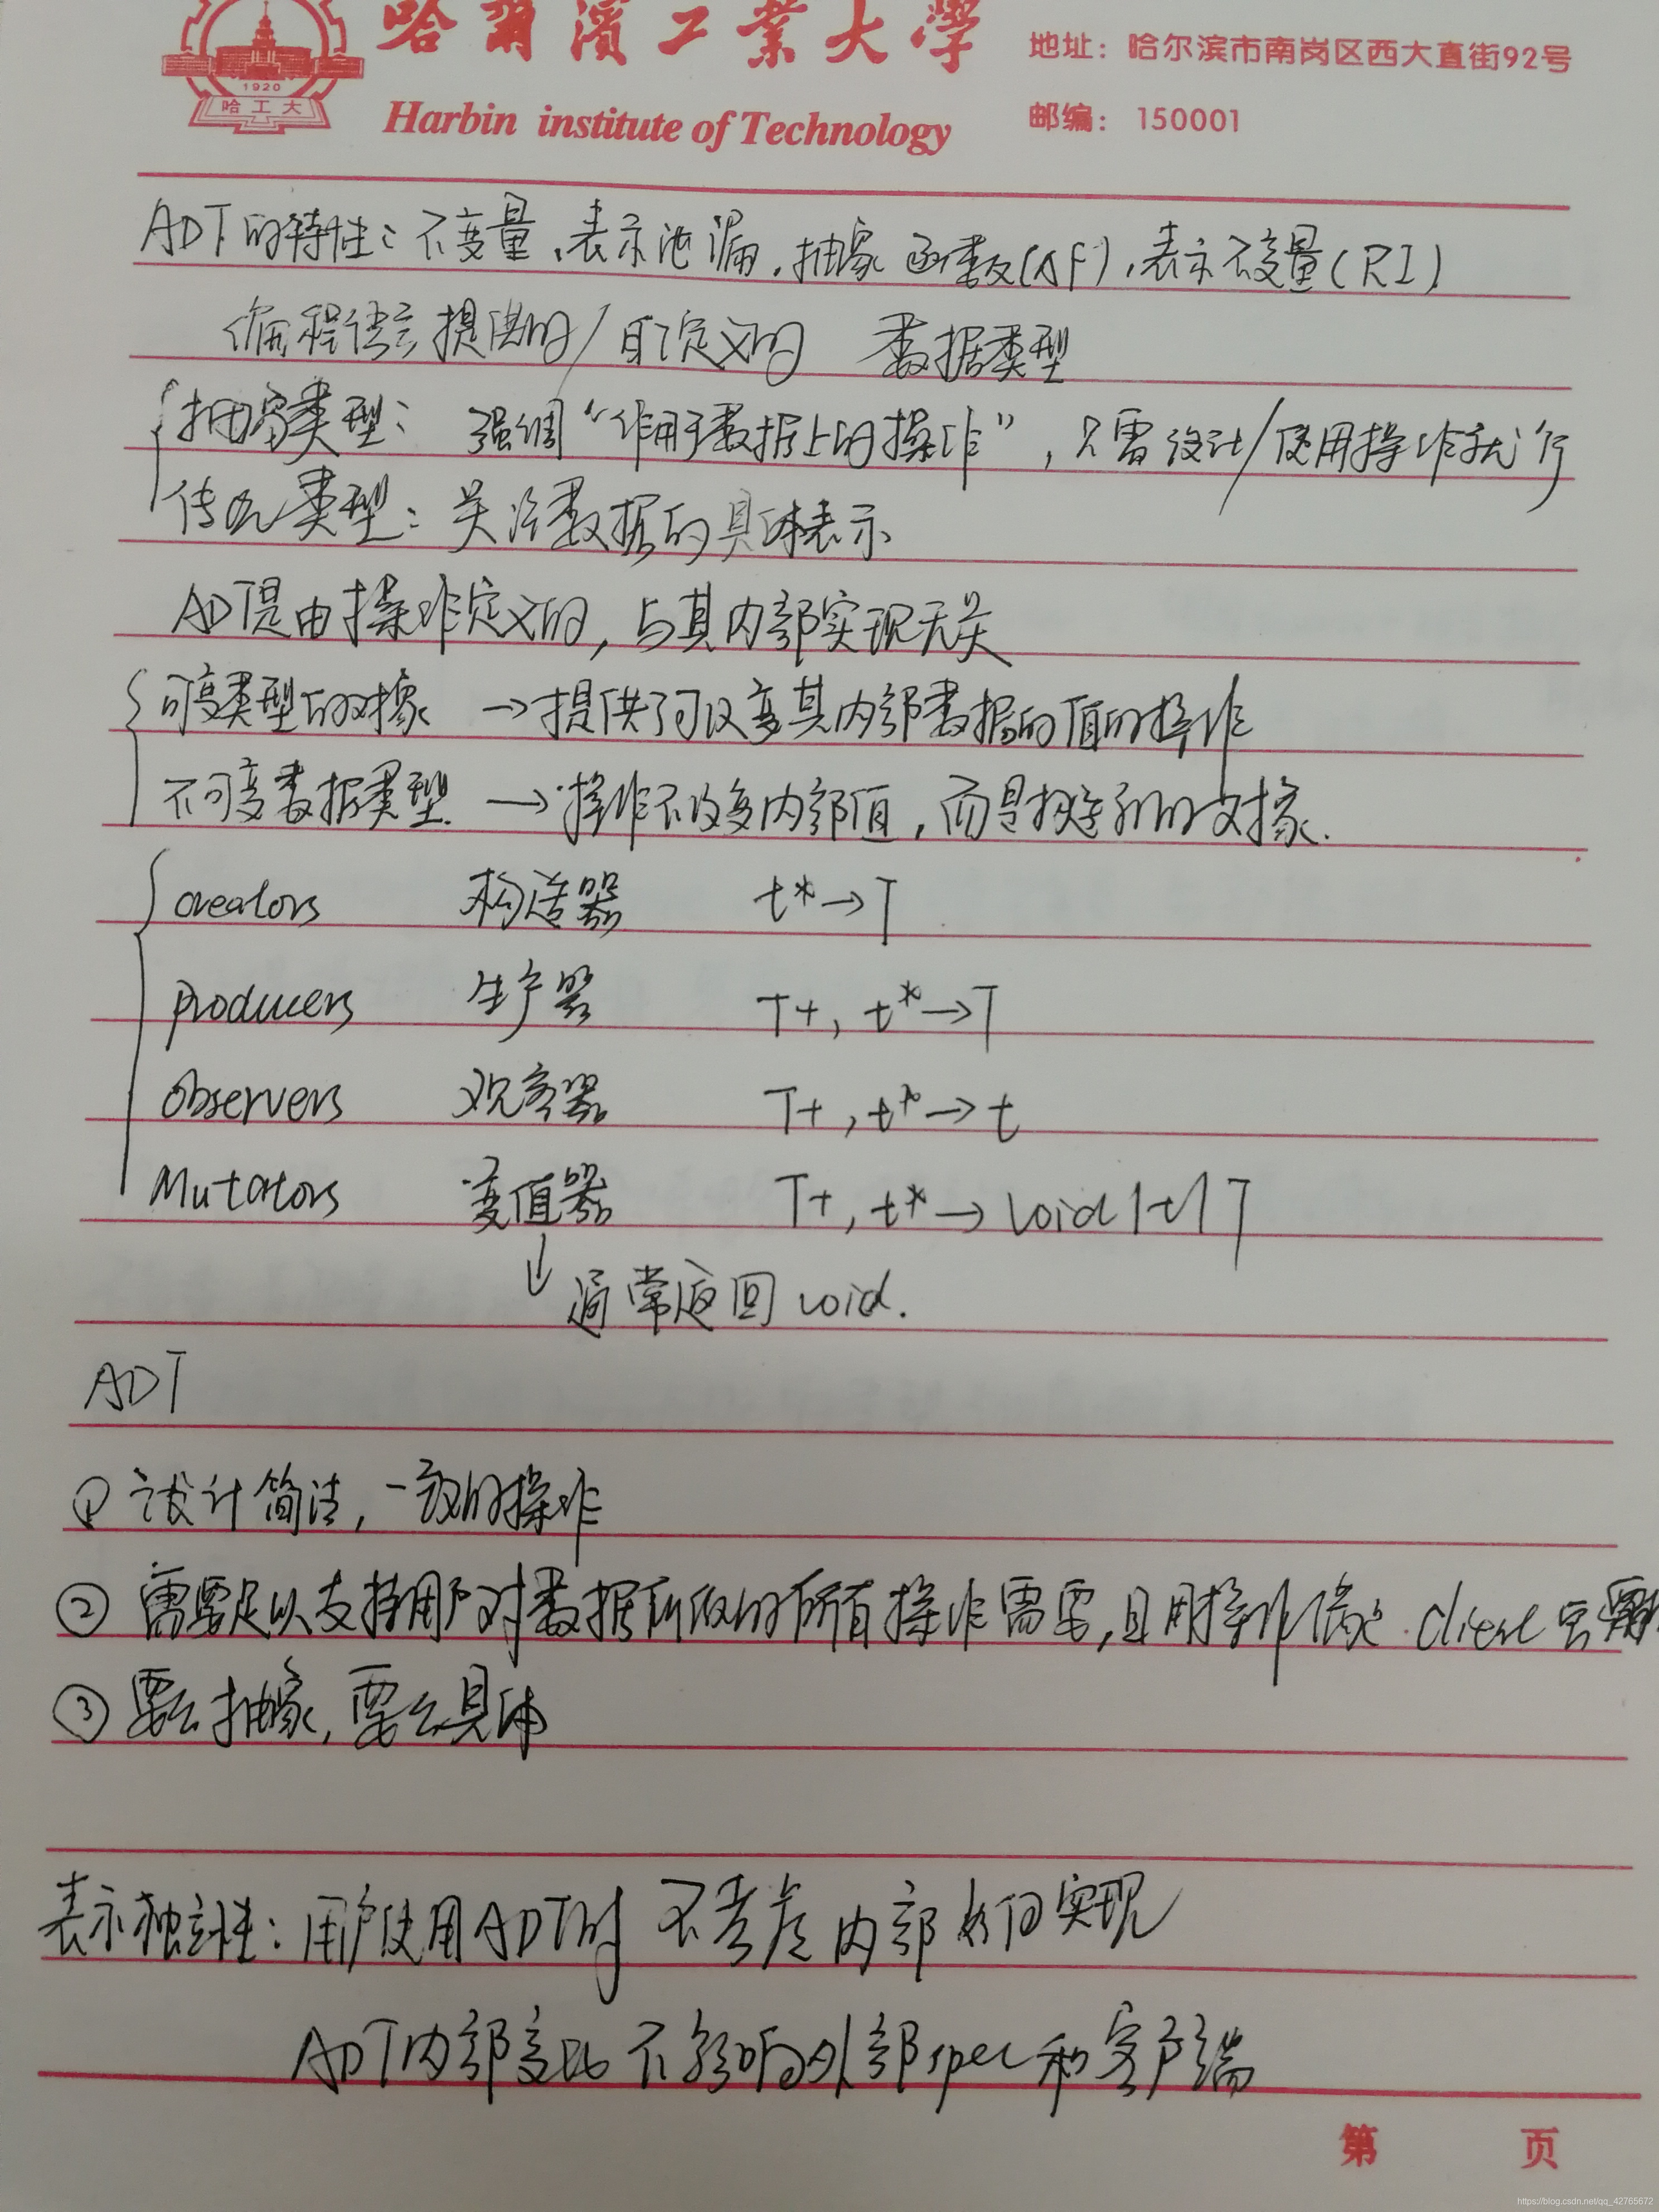 哈爾濱工業大學
地址：哈尔滨市南岗区西大直街92号
1920
哈工大
Harbin institute of Technology
邮编：150001
ADT的特性：不变量，表示泄漏，抽象函数(AF)，表示不变量(RI)
编程语言提供的/自定义的 数据类型
抽象类型：强调“作用于数据上的操作”，只需设计/使用操作就行
传统类型：关注数据的具体表示
ADT是由操作定义的，与其内部实现无关
可变类型的对象 →提供了可改变其内部数据的值的操作
不可变数据类型 →操作不改变内部值，而是构造新的对象.
creators 构造器 t*→T
producers 生产器 T+, t*→T
Observers 观察器 T+, t*→t
Mutators 变值器 T+, t*→void|t|T
↓通常返回void.
ADT
① 设计简洁，一致的操作
② 需要足以支持用户对数据所做的所有操作需要，且用操作满足 client
③ 要么抽象，要么具体
表示独立性：用户使用ADT时 不考虑内部如何实现
ADT内部变化不影响外部spec和客户端
第 页
https://blog.csdn.net/qq_42765672